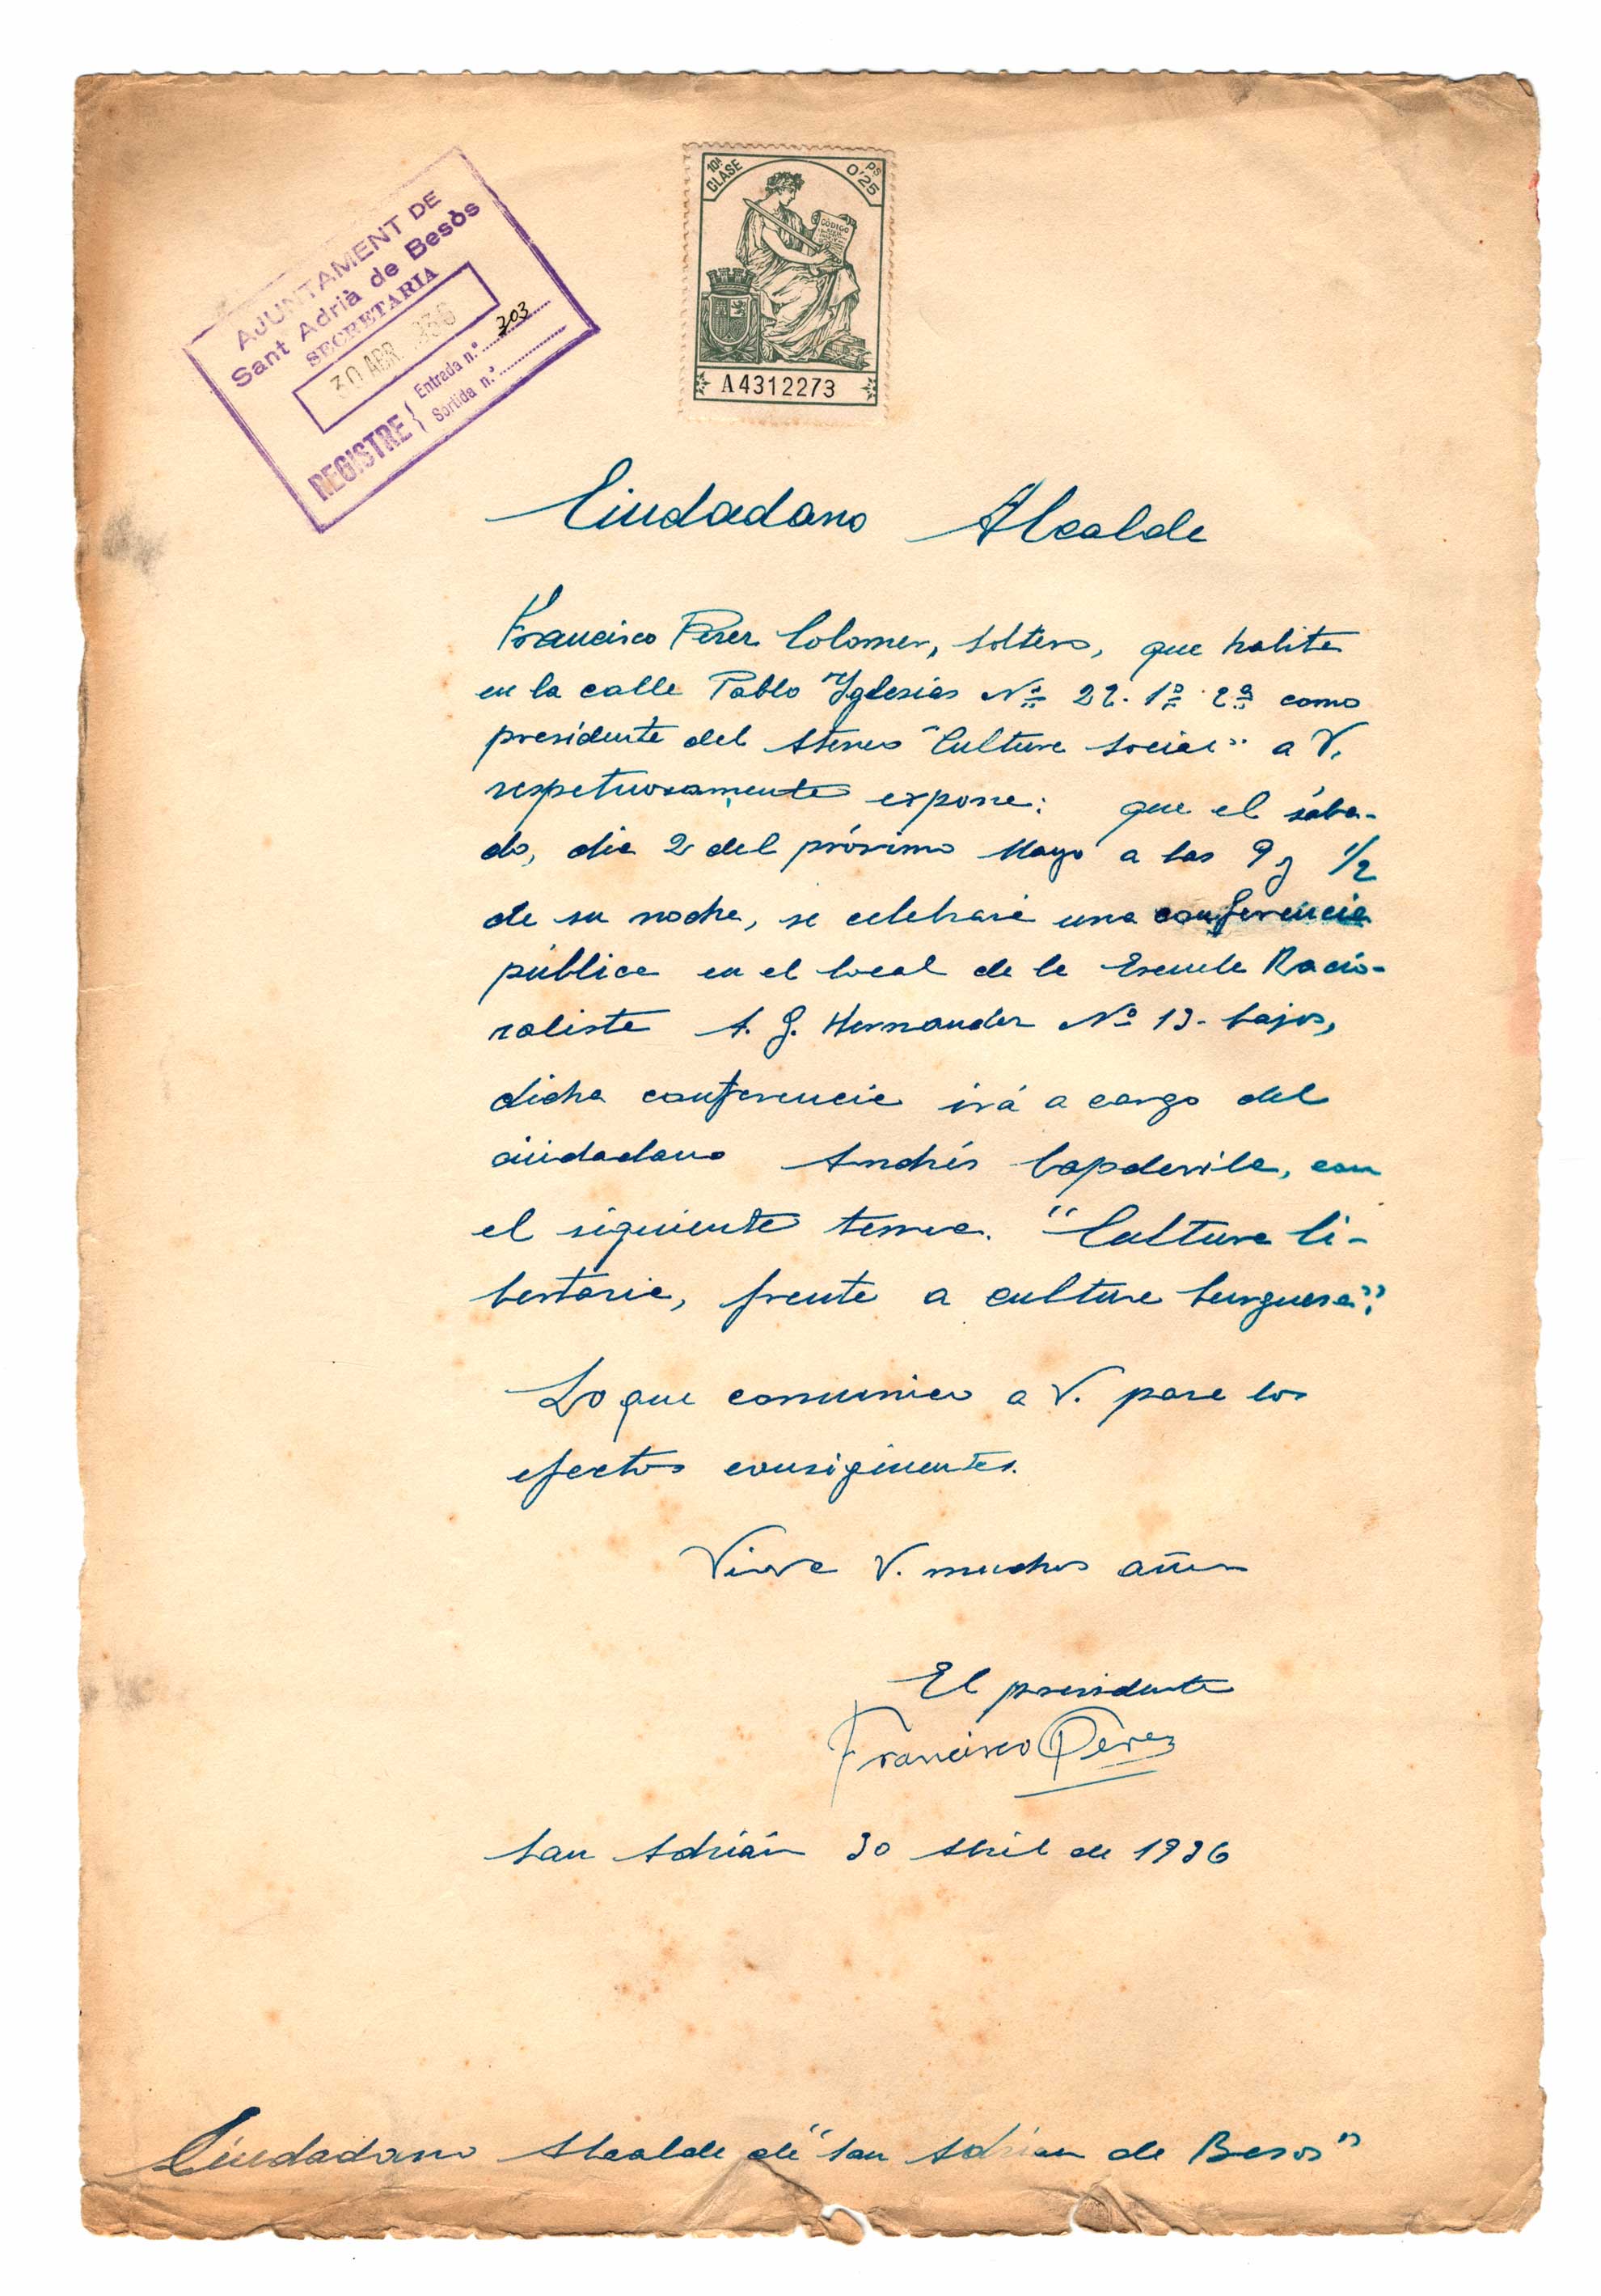 AJUNTAMENT DE
Sant Adrià de Besòs
SECRETARIA
30 ABR. 936
REGISTRE { Entrada n.º 203
Sortida n.º
10ª CLASE
Ps 0'25
CODIGO
A4312273
Ciudadano Alcalde
Francisco Pérez Colomer, soltero, que habita
en la calle Pablo Yglesias Nº 22. 1º 2ª como
presidente del Ateneo "Cultura Social" a V.
respetuosamente expone: que el sába-
do, dia 2 del próximo Mayo a las 9 y 1/2
de su noche, se celebrará una conferencia
pública en el local de la Escuela Racio-
nalista A. G. Hernandez Nº 13- bajos,
dicha conferencia irá a cargo del
ciudadano Andrés Capdevila, con
el siguiente tema. "Cultura li-
bertaria, frente a cultura burguesa".
Lo que comunico a V. para los
efectos consiguientes.
Viva V. muchos años
El presidente
Francisco Pérez
San Adrián 30 Abril de 1936
Ciudadano Alcalde de "San Adrian de Besos"